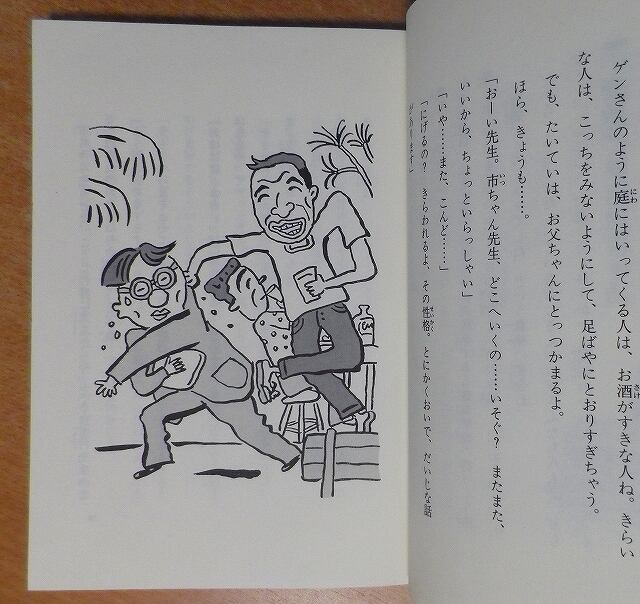 ゲンさんのように庭にはいってくる人は、お酒がすきな人ね。きらい
な人は、こっちをみないようにして、足ばやにとおりすぎちゃう。
でも、たいていは、お父ちゃんにとっつかまるよ。
ほら、きょうも……。
「おーい先生。市ちゃん先生、どこへいくの……いそぐ? またまた、
いいから、ちょっといらっしゃい」
「いや……また、こんど……」
「にげるの? きらわれるよ、その性格。とにかくおいで、だいじな話
があります」